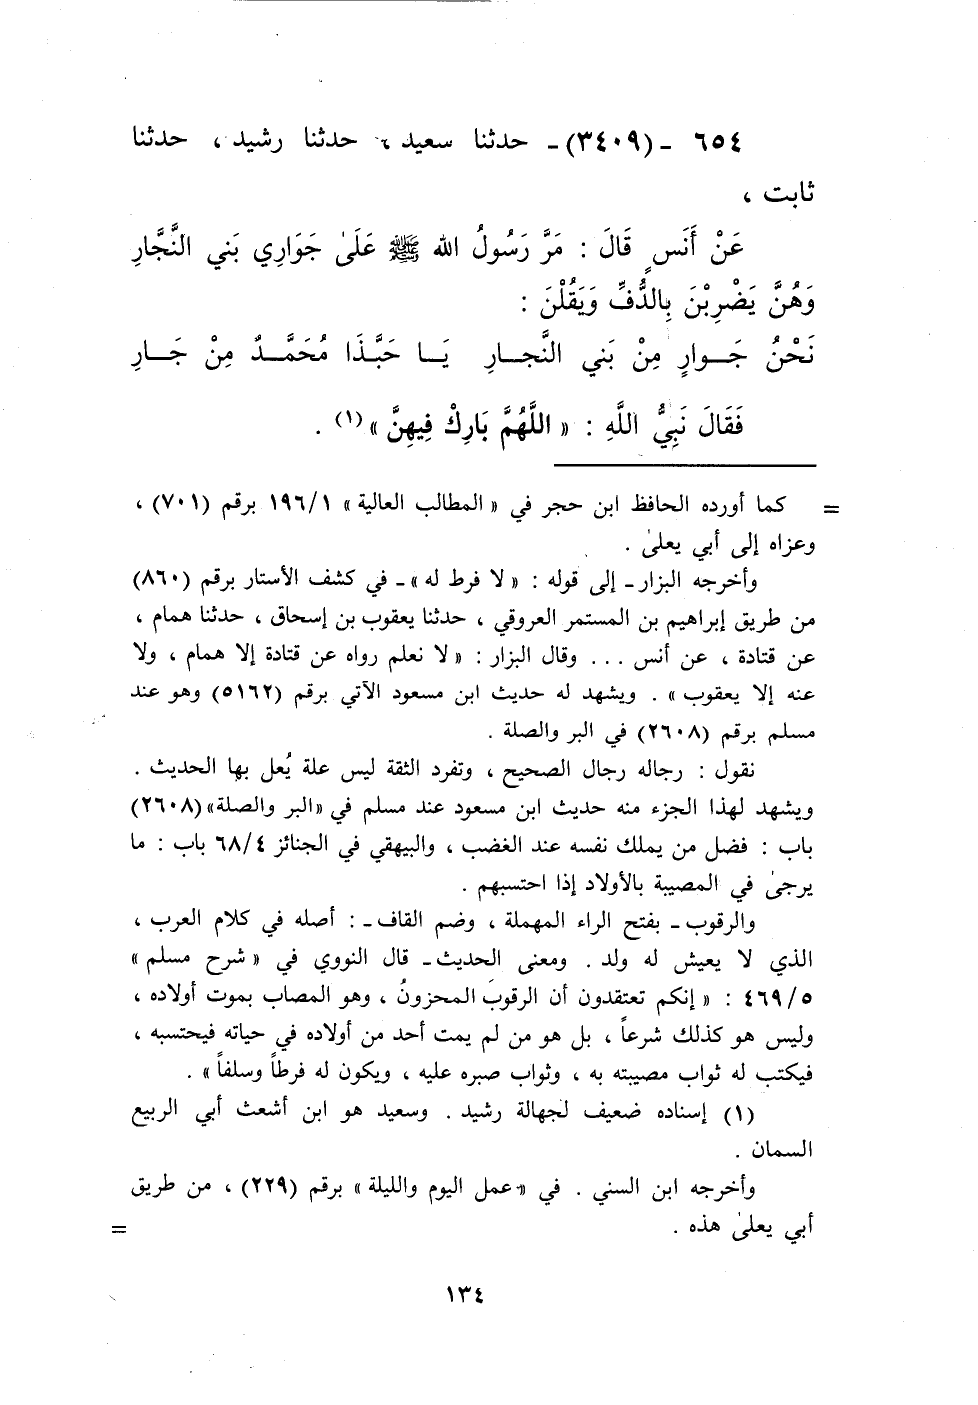 ٦٥٤ - (٣٤٠٩) - حدثنا سعيد ، حدثنا رشيد ، حدثنا
ثابت ،
عَنْ أَنَسٍ قَالَ : مَرَّ رَسُولُ الله ﷺ عَلَىٰ جَوَارِي بَنِي النَّجَّارِ
وَهُنَّ يَضْرِبْنَ بِالدُّفِّ وَيَقُلْنَ :
نَحْنُ جَــوارٍ مِنْ بَنِي النَّجــارِ يَــا حَبَّذَا مُحَمَّــدٌ مِنْ جَــارِ
فَقَالَ نَبِيُّ اللَّهِ : « اللَّهُمَّ بَارِكْ فِيهِنَّ »(١) .
= كما أورده الحافظ ابن حجر في « المطالب العالية » ١٩٦/١ برقم (٧٠١) ،
وعزاه إلى أبي يعلىٰ .
وأخرجه البزار ـ إلى قوله : « لا فرط له » ـ في كشف الأستار برقم (٨٦٠)
من طريق إبراهيم بن المستمر العروقي ، حدثنا يعقوب بن إسحاق ، حدثنا همام ،
عن قتادة ، عن أنس ... وقال البزار : « لا نعلم رواه عن قتادة إلا همام ، ولا
عنه إلا يعقوب » . ويشهد له حديث ابن مسعود الآتي برقم (٥١٦٢) وهو عند
مسلم برقم (٢٦٠٨) في البر والصلة .
نقول : رجاله رجال الصحيح ، وتفرد الثقة ليس علة يُعل بها الحديث .
ويشهد لهذا الجزء منه حديث ابن مسعود عند مسلم في «البر والصلة» (٢٦٠٨)
باب : فضل من يملك نفسه عند الغضب ، والبيهقي في الجنائز ٦٨/٤ باب : ما
يرجىٰ في المصيبة بالأولاد إذا احتسبهم .
والرقوب ـ بفتح الراء المهملة ، وضم القاف ـ : أصله في كلام العرب ،
الذي لا يعيش له ولد . ومعنى الحديث ـ قال النووي في « شرح مسلم »
٤٦٩/٥ : « إنكم تعتقدون أن الرقوبَ المحزونُ ، وهو المصاب بموت أولاده ،
وليس هو كذلك شرعاً ، بل هو من لم يمت أحد من أولاده في حياته فيحتسبه ،
فيكتب له ثواب مصيبته به ، وثواب صبره عليه ، ويكون له فرطاً وسلفاً » .
(١) إسناده ضعيف لجهالة رشيد . وسعيد هو ابن أشعث أبي الربيع
السمان .
وأخرجه ابن السني . في « عمل اليوم والليلة » برقم (٢٢٩) ، من طريق
أبي يعلىٰ هذه . =
١٣٤